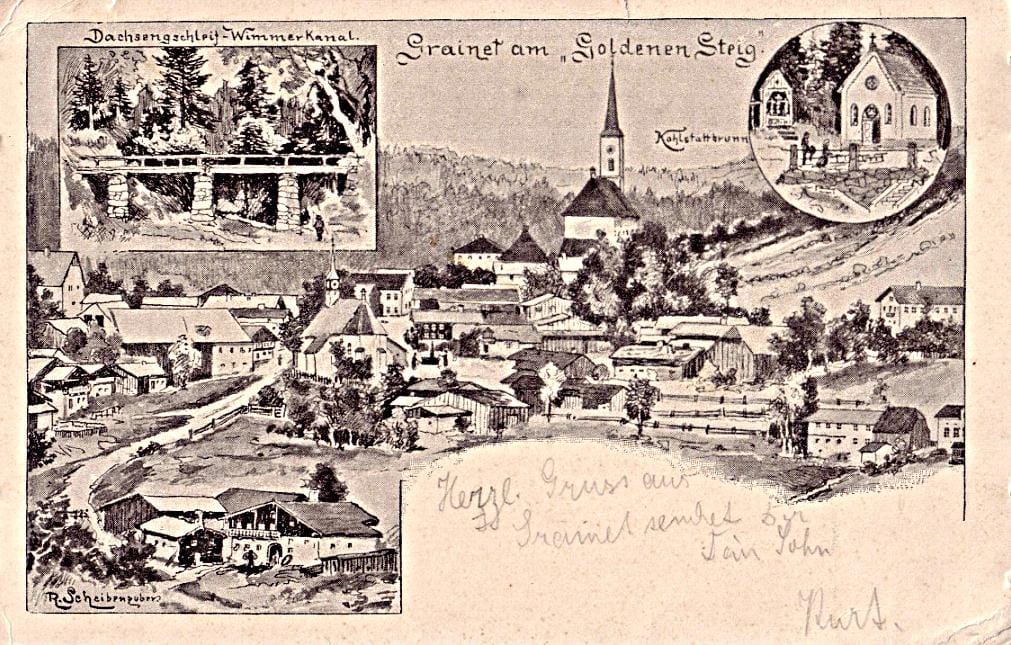 Dachsengschleif-Wimmerkanal.
Grainet am „Goldenen Steig".
Kohlstattbrunn
Herzl. Gruss aus
Grainet sendet
Dein Sohn
Kurt.
R. Scheibenzuber